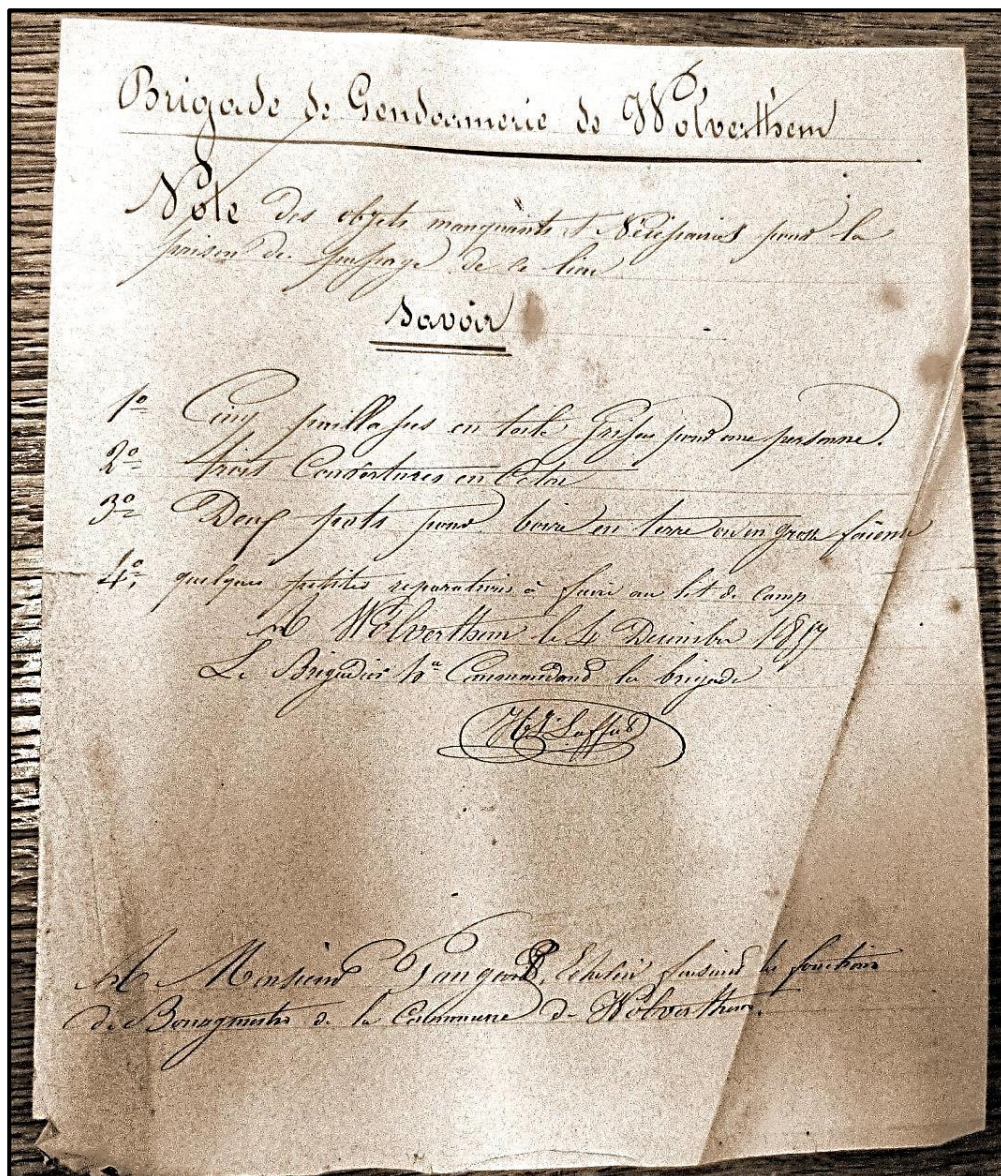 Brigade de Gendarmerie de Wolverthem
Note des objets manquants et Nécéssaires pour la
prison de passage de ce lieu
Savoir
1º Cinq paillasses en toile Grises pour une personne.
2º trois Couvertures en Coton
3º Deux pots pour boire en terre ou en grosse faience
4º quelques petites reparations à faire au lit de camp
A Wolverthem le 4 Decembre
Le Brigadier Commandant la brigade
A Monsieur Echevin faisant les fonctions
de Bourgmestre de la Commune de Wolverthem.